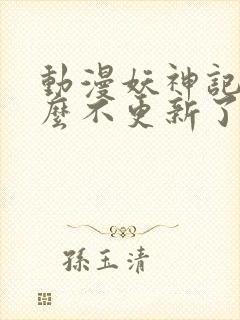 動漫妖神記
麼不更新了
孫玉清